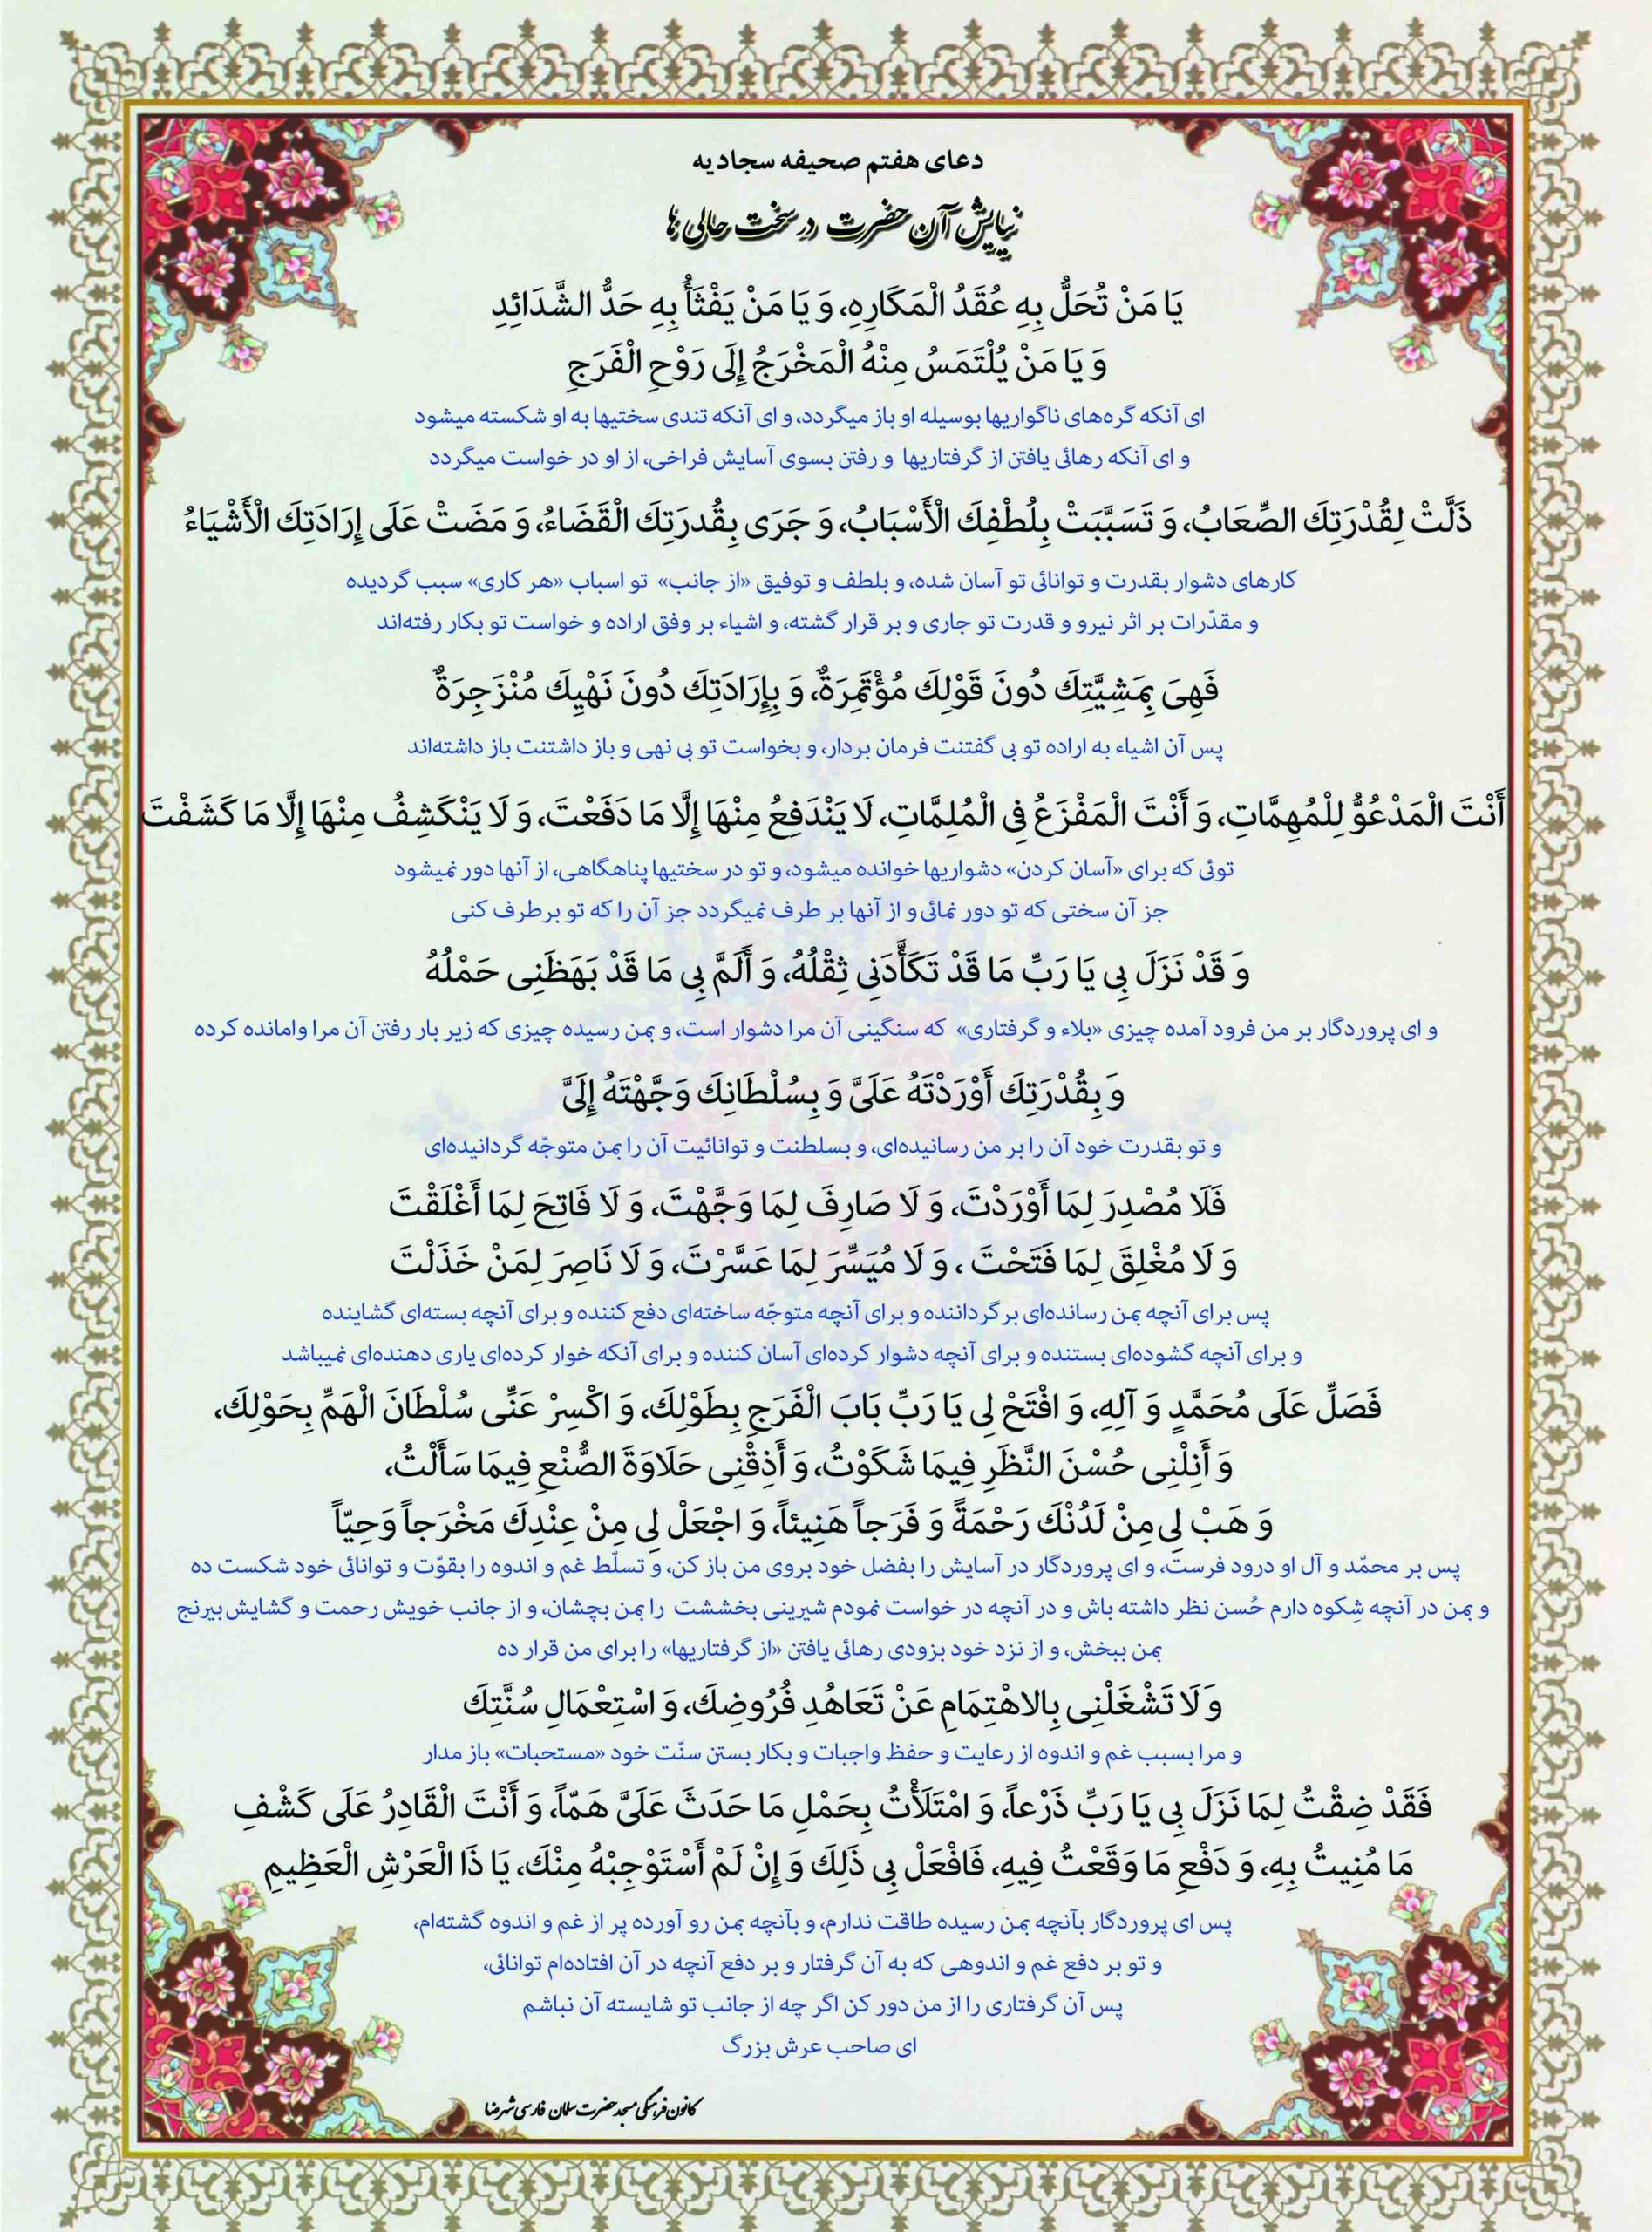 دعای هفتم صحیفه سجادیه
نیایش آن حضرت در سخت حالی ها
يَا مَنْ تُحَلُّ بِهِ عُقَدُ الْمَكَارِهِ، وَ يَا مَنْ يَفْثَأُ بِهِ حَدُّ الشَّدَائِدِ
وَ يَا مَنْ يُلْتَمَسُ مِنْهُ الْمَخْرَجُ إِلَى رَوْحِ الْفَرَجِ
ای آنکه گره‌های ناگواریها بوسیله او باز میگردد، و ای آنکه تندی سختیها به او شکسته میشود
و ای آنکه رهائی یافتن از گرفتاریها و رفتن بسوی آسایش فراخی، از او در خواست میگردد
ذَلَّتْ لِقُدْرَتِكَ الصِّعَابُ، وَ تَسَبَّبَتْ بِلُطْفِكَ الْأَسْبَابُ، وَ جَرَى بِقُدرَتِكَ الْقَضَاءُ، وَ مَضَتْ عَلَى إِرَادَتِكَ الْأَشْيَاءُ
کارهای دشوار بقدرت و توانائی تو آسان شده، و بلطف و توفیق «از جانب» تو اسباب «هر کاری» سبب گردیده
و مقدّرات بر اثر نیرو و قدرت تو جاری و بر قرار گشته، و اشیاء بر وفق اراده و خواست تو بکار رفته‌اند
فَهِيَ بِمَشِيَّتِكَ دُونَ قَوْلِكَ مُؤْتَمِرَةٌ، وَ بِإِرَادَتِكَ دُونَ نَهْيِكَ مُنْزَجِرَةٌ
پس آن اشیاء به اراده تو بی گفتنت فرمان بردار، و بخواست تو بی نهی و باز داشتنت باز داشته‌اند
أَنْتَ الْمَدْعُوُّ لِلْمُهِمَّاتِ، وَ أَنْتَ الْمَفْزَعُ فِي الْمُلِمَّاتِ، لَا يَنْدَفِعُ مِنْهَا إِلَّا مَا دَفَعْتَ، وَ لَا يَنْكَشِفُ مِنْهَا إِلَّا مَا كَشَفْتَ
توئی که برای «آسان کردن» دشواریها خوانده میشود، و تو در سختیها پناهگاهی، از آنها دور نمیشود
جز آن سختی که تو دور نمائی و از آنها بر طرف نمیگردد جز آن را که تو برطرف کنی
وَ قَدْ نَزَلَ بِي يَا رَبِّ مَا قَدْ تَكَأَّدَنِي ثِقْلُهُ، وَ أَلَمَّ بِي مَا قَدْ بَهَظَنِي حَمْلُهُ
و ای پروردگار بر من فرود آمده چیزی «بلاء و گرفتاری» که سنگینی آن مرا دشوار است، و بمن رسیده چیزی که زیر بار رفتن آن مرا وامانده کرده
وَ بِقُدْرَتِكَ أَوْرَدْتَهُ عَلَيَّ وَ بِسُلْطَانِكَ وَجَّهْتَهُ إِلَيَّ
و تو بقدرت خود آن را بر من رسانیده‌ای، و بسلطنت و توانائیت آن را بمن متوجّه گردانیده‌ای
فَلَا مُصْدِرَ لِمَا أَوْرَدْتَ، وَ لَا صَارِفَ لِمَا وَجَّهْتَ، وَ لَا فَاتِحَ لِمَا أَغْلَقْتَ
وَ لَا مُغْلِقَ لِمَا فَتَحْتَ ، وَ لَا مُيَسِّرَ لِمَا عَسَّرْتَ، وَ لَا نَاصِرَ لِمَنْ خَذَلْتَ
پس برای آنچه بمن رسانده‌ای برگرداننده و برای آنچه متوجّه ساخته‌ای دفع کننده و برای آنچه بسته‌ای گشاینده
و برای آنچه گشوده‌ای بستنده و برای آنچه دشوار کرده‌ای آسان کننده و برای آنکه خوار کرده‌ای یاری دهنده‌ای نمیباشد
فَصَلِّ عَلَى مُحَمَّدٍ وَ آلِهِ، وَ افْتَحْ لِي يَا رَبِّ بَابَ الْفَرَجِ بِطَوْلِكَ، وَ اكْسِرْ عَنِّي سُلْطَانَ الْهَمِّ بِحَوْلِكَ،
وَ أَنِلْنِي حُسْنَ النَّظَرِ فِيمَا شَكَوْتُ، وَ أَذِقْنِي حَلَاوَةَ الصُّنْعِ فِيمَا سَأَلْتُ،
وَ هَبْ لِي مِنْ لَدُنْكَ رَحْمَةً وَ فَرَجاً هَنِيئاً، وَ اجْعَلْ لِي مِنْ عِنْدِكَ مَخْرَجاً وَحِيّاً
پس بر محمّد و آل او درود فرست، و ای پروردگار در آسایش را بفضل خود بروی من باز کن، و تسلّط غم و اندوه را بقوّت و توانائی خود شکست ده
و بمن در آنچه شِکوه دارم حُسن نظر داشته باش و در آنچه در خواست نمودم شیرینی بخششت را بمن بچشان، و از جانب خویش رحمت و گشایش بیرنج
بمن ببخش، و از نزد خود بزودی رهائی یافتن «از گرفتاریها» را برای من قرار ده
وَ لَا تَشْغَلْنِي بِالاهْتِمَامِ عَنْ تَعَاهُدِ فُرُوضِكَ، وَ اسْتِعْمَالِ سُنَّتِكَ
و مرا بسبب غم و اندوه از رعایت و حفظ واجبات و بکار بستن سنّت خود «مستحبات» باز مدار
فَقَدْ ضِقْتُ لِمَا نَزَلَ بِي يَا رَبِّ ذَرْعاً، وَ امْتَلَأْتُ بِحَمْلِ مَا حَدَثَ عَلَيَّ هَمّاً، وَ أَنْتَ الْقَادِرُ عَلَى كَشْفِ
مَا مُنِيتُ بِهِ، وَ دَفْعِ مَا وَقَعْتُ فِيهِ، فَافْعَلْ بِي ذَلِكَ وَ إِنْ لَمْ أَسْتَوْجِبْهُ مِنْكَ، يَا ذَا الْعَرْشِ الْعَظِيمِ
پس ای پروردگار بآنچه بمن رسیده طاقت ندارم، و بآنچه بمن رو آورده پر از غم و اندوه گشته‌ام،
و تو بر دفع غم و اندوهی که به آن گرفتار و بر دفع آنچه در آن افتاده‌ام توانائی،
پس آن گرفتاری را از من دور کن اگر چه از جانب تو شایسته آن نباشم
ای صاحب عرش بزرگ
کانون فرهنگی مسجد حضرت سلمان فارسی شهرضا